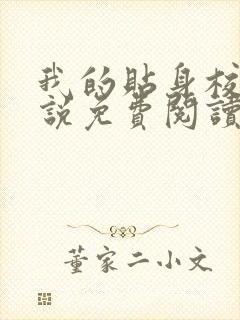 我的貼身校
說免費閱讀
董家二小文